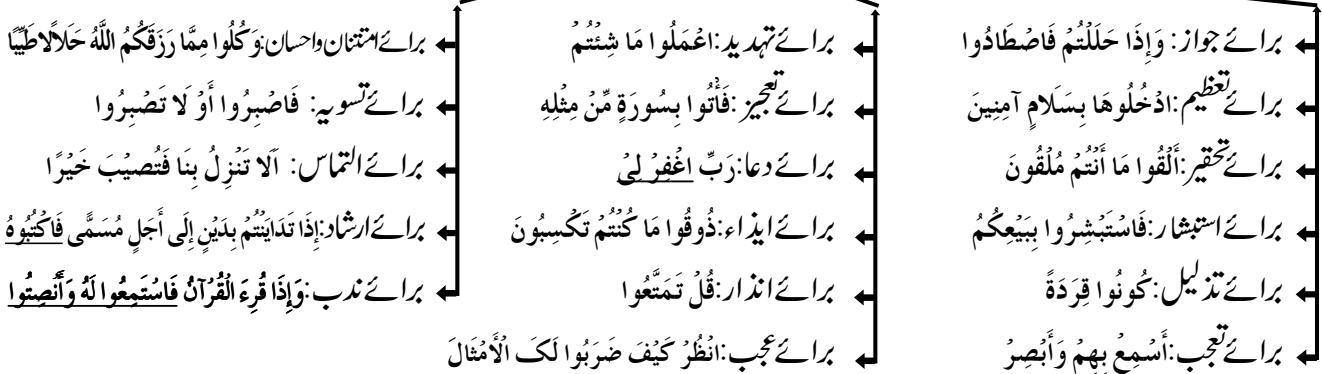 برائے جواز: وَإِذَا حَلَلْتُمْ فَاصْطَادُوا
برائے تعظیم: ادْخُلُوهَا بِسَلَامٍ آمِنِينَ
برائے تحقیر: أَلْقُوا مَا أَنْتُمْ مُلْقُونَ
برائے استبشار: فَاسْتَبْشِرُوا بِبَيْعِكُمُ
برائے تذلیل: كُونُوا قِرَدَةً
برائے تعجب: أَسْمِعْ بِهِمْ وَأَبْصِرْ
برائے تہدید: اعْمَلُوا مَا شِئْتُمْ
برائے تعجیز: فَأْتُوا بِسُورَةٍ مِّنْ مِثْلِهِ
برائے دعا: رَبِّ اغْفِرْ لِیْ
برائے ایذاء: ذُوقُوا مَا كُنْتُمْ تَكْسِبُونَ
برائے انذار: قُلْ تَمَتَّعُوا
برائے عجب: انْظُرْ كَيْفَ ضَرَبُوا لَکَ الْأَمْثَالَ
برائے امتنان واحسان: وَكُلُوا مِمَّا رَزَقَكُمُ اللَّهُ حَلَالًا طَيِّبًا
برائے تسویہ: فَاصْبِرُوا أَوْ لَا تَصْبِرُوا
برائے التماس: اَلَا تَنْزِلُ بِنَا فَتُصِيْبَ خَيْرًا
برائے ارشاد: إِذَا تَدَايَنْتُمْ بِدَيْنٍ إِلَى أَجَلٍ مُسَمًّى فَاكْتُبُوهُ
برائے ندب: وَإِذَا قُرِءَ الْقُرْآنُ فَاسْتَمِعُوا لَهُ وَأَنْصِتُوا